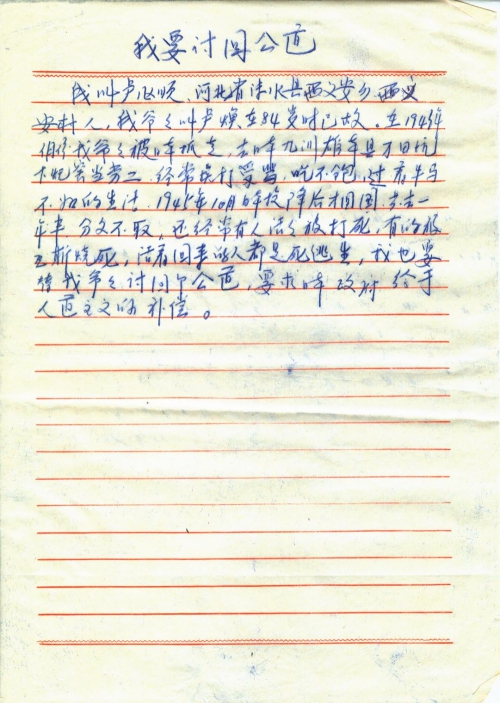 我要讨回公道
我叫卢心顺、河北省涞水县西义安乡西义
安村人，我爷爷叫卢焕，在84岁时已故。在1943年
我爷爷被日军抓走，去日本九州
当劳工，经常挨打受骂，吃不饱，过着牛马
不如的生活，1945年10月日本投降后才回国，去
年半分文不取，还经常有人活活被打死，有的被
烧死，活着回来的人都是死逃生，我也要
替我爷爷讨回个公道，要求日本政府给于
人道主义的补偿。